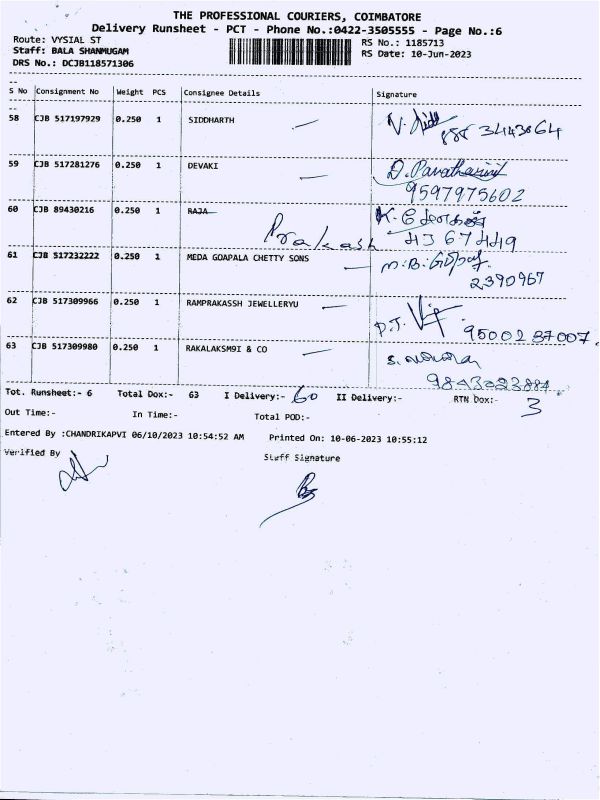 THE PROFESSIONAL COURIERS, COIMBATORE
Delivery Runsheet - PCT - Phone No.:0422-3505555 - Page No.:6
Route: VYSIAL ST
RS No.: 1185713
Staff: BALA SHANMUGAM
RS Date: 10-Jun-2023
DRS No.: DCJB118571306
S No Consignment No Weight PCS Consignee Details Signature
58 CJB 517197929 0.250 1 SIDDHARTH
59 CJB 517281276 0.250 1 DEVAKI
9597975602
60 CJB 89430216 0.250 1 RAJA
Prakash
61 CJB 517232222 0.250 1 MEDA GOAPALA CHETTY SONS
2390967
62 CJB 517309966 0.250 1 RAMPRAKASSH JEWELLERYU
9500237007.
63 CJB 517309980 0.250 1 RAKALAKSM9I & CO
9843023884
Tot. Runsheet:- 6 Total Dox:- 63 I Delivery:- 60 II Delivery:- RTN Dox:- 3
Out Time:- In Time:- Total POD:-
Entered By :CHANDRIKAPVI 06/10/2023 10:54:52 AM Printed On: 10-06-2023 10:55:12
Verified By Staff Signature